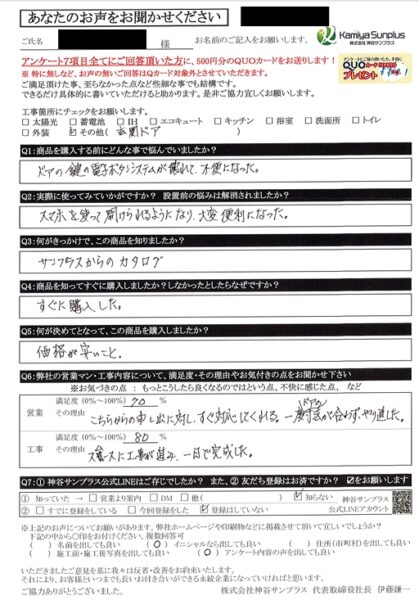 あなたのお声をお聞かせください
Kamiya Sunplus
株式会社 神谷サンプラス
ご氏名
様
お名前のご記入をお願いします。
アンケート7項目全てにご回答頂いた方に、500円分のQUOカードをお送りします!
QUOカード
プレゼント
※ 特に無しなど、お声の無いご回答はQカード対象外とさせていただきます。
ご満足頂けた事、至らなかった点など些細な事でも結構です。
できるだけ具体的に書いていただけると助かります。是非ご協力宜しくお願いします。
工事箇所にチェックをお願いします。
□ 太陽光 □ 蓄電池 □ IH □ エコキュート □ キッチン □ 浴室 □ 洗面所 □ トイレ
□ 外装 ☑ その他( 玄関ドア )
Q1:商品を購入する前にどんな事で悩んでいましたか?
ドアの鍵の電子ボタンシステムが壊れて、不便になった。
Q2:実際に使ってみていかがですか? 設置前の悩みは解消されましたか?
スマホを使って開けられるようになり、大変便利になった。
Q3:何がきっかけで、この商品を知りましたか?
サンプラスからのカタログ
Q4:商品を知ってすぐに購入しましたか?しなかったとしたらなぜですか?
すぐに購入した。
Q5:何が決めてとなって、この商品を購入しましたか?
価格が安いこと。
Q6:弊社の営業マン・工事内容について、満足度・その理由やお気付きの点をお聞かせ下さい
※お気づきの点 : もっとこうしたら良くなるのではという点、不快に感じた点、など
営業
満足度(0%~100%) 70 %
その理由 こちらからの申し出に対し、すぐ対応してくれる。一度ドアの寸法が合わず、やり直した。
工事
満足度(0%~100%) 80 %
その理由 スムースに工事が進み、一日で完成した。
Q7:① 神谷サンプラス公式LINEはご存じでしたか? また、② 友だち登録はお済ですか? ☑をお願いします
① 知っていた → □ 営業より案内 □ DM □ 他( ) ☑ 知らない
神谷サンプラス
② □ すでに登録をしている □ 今回登録をした ☑ 登録はしていない
公式LINEアカウント
※上記のお声についてお願いがあります。弊社ホームページや印刷物などに掲載させて頂いて宜しいでしょうか?
下記の中から○印をお付けください。複数回答可
( ) 名前を出しても良い (○) イニシャルなら出しても良い ( ) 住所(市町村)を出しても良い
( ) 施工前・施工後写真を出しても良い (○) アンケート内容の声を出しても良い
いただきましたご意見を基に我々は反省・改善をお約束いたします。
それにより、お客様といつまでも長いお付き合いができる永続企業になっていければと思います。
ご協力ありがとうございました。
株式会社神谷サンプラス 代表取締役社長 伊藤謙一